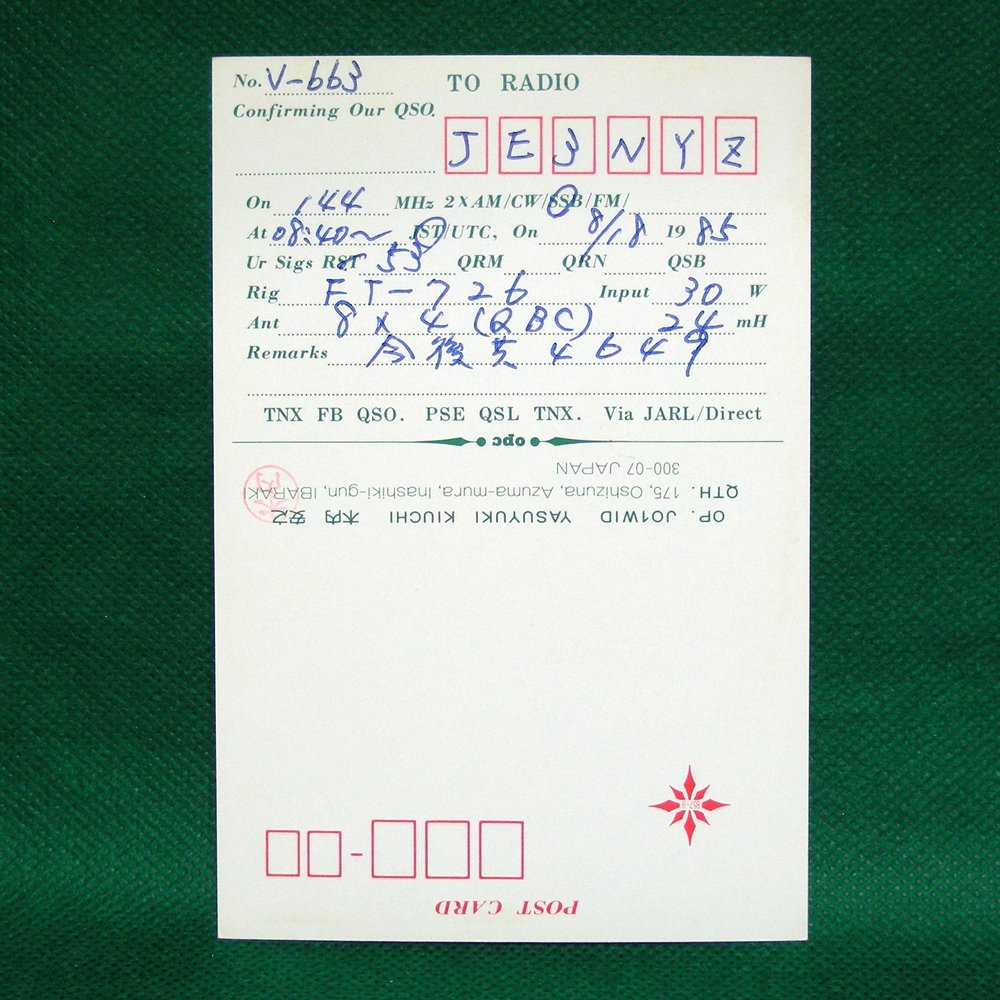 No. V-663 TO RADIO
Confirming Our QSO.
J E 3 N Y Z
On 144 MHz 2XAM/CW/SSB/FM/
At 08:40~ JST/UTC, On 8/18 1985
Ur Sigs RST 53 QRM QRN QSB
Rig FT-726 Input 30 W
Ant 8 x 4 (QBC) 24 mH
Remarks 今後共 4649
TNX FB QSO. PSE QSL TNX. Via JARL/Direct
opc
OP. JO1WID YASUYUKI KIUCHI 木内 安之
QTH. 175, Oshizuna, Azuma-mura, Inashiki-gun, IBARAKI
300-07 JAPAN
POST CARD